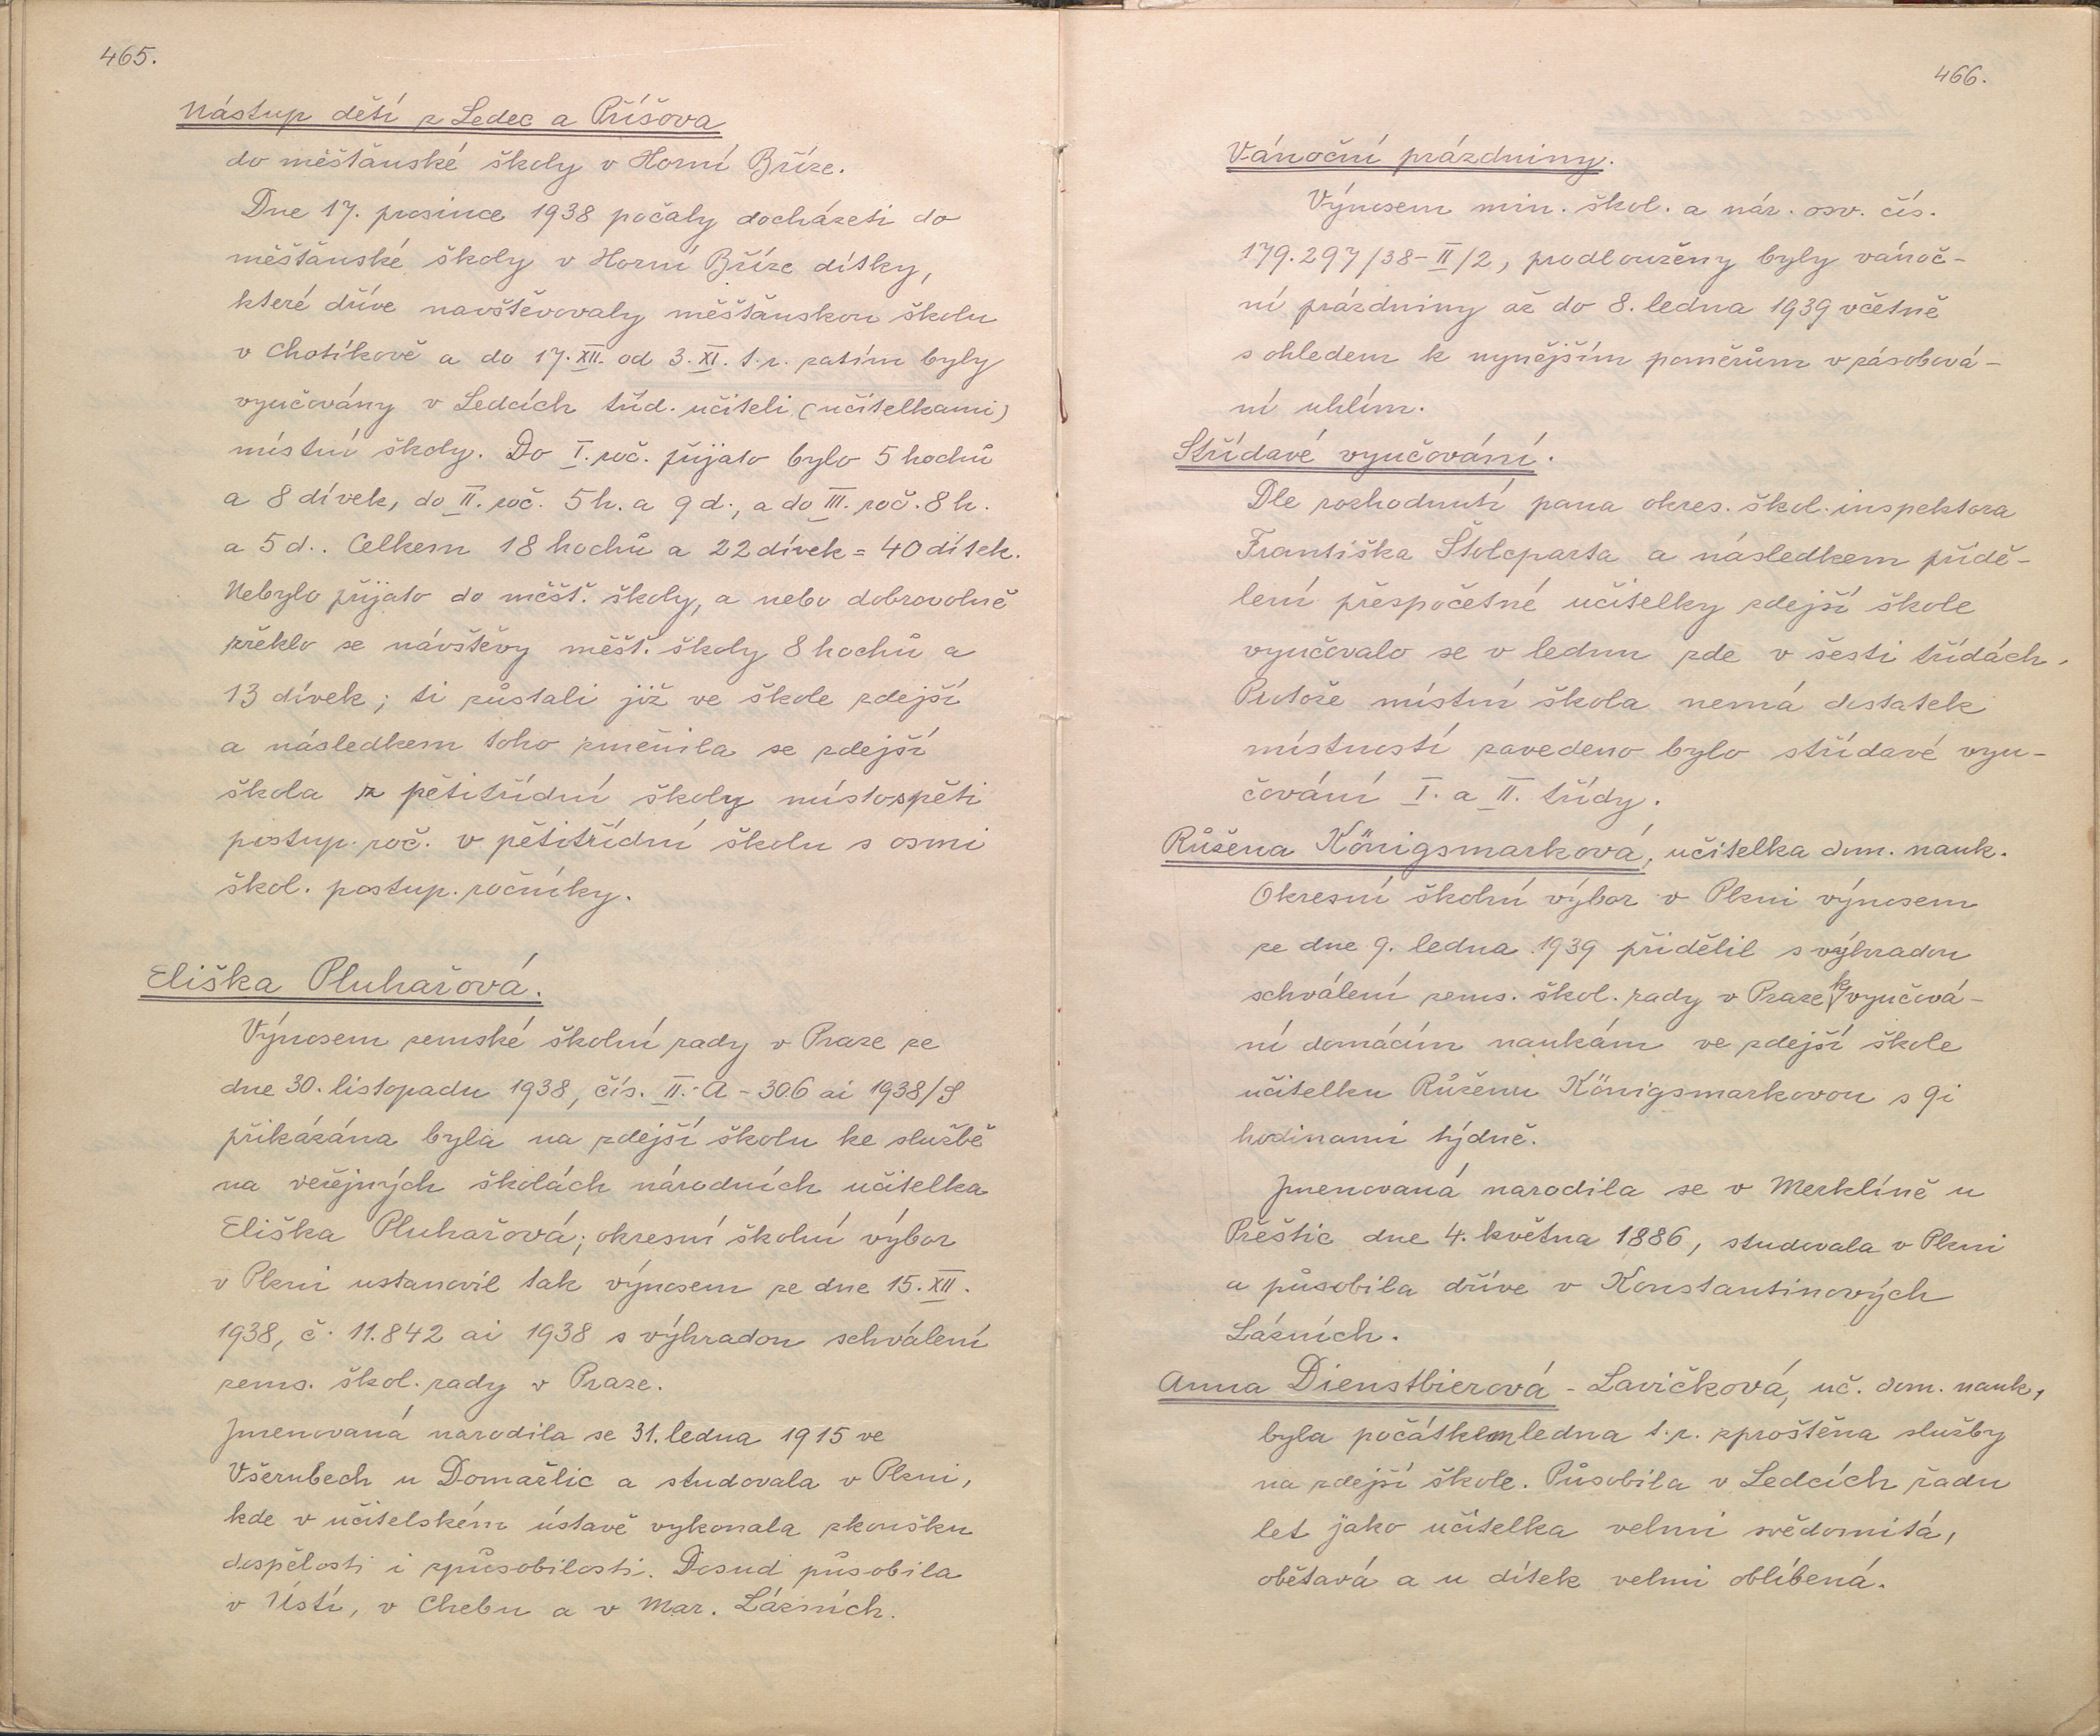 465.
Nástup dětí z Ledec a Příšova
do měšťanské školy v Horní Bříze.
Dne 17. prosince 1938 počaly docházeti do
měšťanské školy v Horní Bříze dítky,
které dříve navštěvovaly měšťanskou školu
v Chotíkově a do 17. XII. od 3. XI. t. r. zatím byly
vyučovány v Ledcích tříd. učiteli (učitelkami)
místní školy. Do I. roč. přijato bylo 5 hochů
a 8 dívek, do II. roč. 5 h. a 9 d., a do III. roč. 8 h.
a 5 d.. Celkem 18 hochů a 22 dívek = 40 dítek.
Nebylo přijato do měšť. školy, a nebo dobrovolně
zřeklo se návštěvy měšť. školy 8 hochů a
13 dívek; ti zůstali již ve škole zdejší
a následkem toho změnila se zdejší
škola z pětitřídní školy místo s pěti
postup. roč. v pětitřídní školu s osmi
škol. postup. ročníky.
Eliška Pluhařová.
Výnosem zemské školní rady v Praze ze
dne 30. listopadu 1938, čís. II.-A-306 ai 1938/9
přikázána byla na zdejší školu ke službě
na veřejných školách národních učitelka
Eliška Pluhařová; okresní školní výbor
v Plzni ustanovil tak výnosem ze dne 15. XII.
1938, č. 11.842 ai 1938 s výhradou schválení
zems. škol. rady v Praze.
Jmenovaná narodila se 31. ledna 1915 ve
Všerubech u Domažlic a studovala v Plzni,
kde v učitelském ústavě vykonala zkoušku
dospělosti i způsobilosti. Dosud působila
v Ústí, v Chebu a v Mar. Lázních.
466.
Vánoční prázdniny.
Výnosem min. škol. a nár. osv. čís.
179.297/38-II/2, prodlouženy byly vánoč-
ní prázdniny až do 8. ledna 1939 včetně
s ohledem k nynějším poměrům v zásobová-
ní uhlím.
Střídavé vyučování.
Dle rozhodnutí pana okres. škol. inspektora
Františka Štolcparta a následkem přidě-
lení přespočetné učitelky zdejší škole
vyučovalo se v lednu zde v šesti třídách.
Protože místní škola nemá dostatek
místností zavedeno bylo střídavé vyu-
čování I. a II. třídy.
Růžena Königsmarková, učitelka dom. nauk.
Okresní školní výbor v Plzni výnosem
ze dne 9. ledna 1939 přidělil s výhradou
schválení zems. škol. rady v Praze k vyučová-
ní domácím naukám ve zdejší škole
učitelku Růženu Königsmarkovou s 9i
hodinami týdně.
Jmenovaná narodila se v Merklíně u
Přeštic dne 4. května 1886, studovala v Plzni
a působila dříve v Konstantinových
Lázních.
Anna Dienstbierová - Lavičková, uč. dom. nauk,
byla počátkem ledna t. r. zproštěna služby
na zdejší škole. Působila v Ledcích řadu
let jako učitelka velmi svědomitá,
obětavá a u dítek velmi oblíbená.